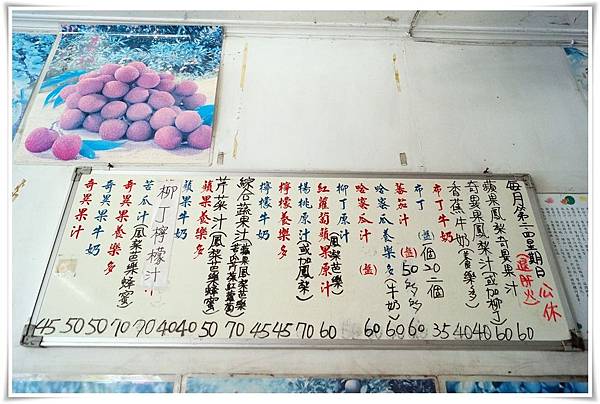 每月第二四星期日
公休
蘋果鳳梨奇異果汁 60
奇異果鳳梨汁(或加柳丁) 60
蘋果鳳梨汁 40
香蕉牛奶(養樂多) 40
布丁牛奶 35
布丁 (一個20 二個
蕃茄汁 (盤)50 60
哈蜜瓜汁 (盤) 60
哈蜜瓜養樂多(牛奶) 60
柳丁原汁
紅蘿蔔蘋果原汁 (鳳梨芭樂) 60
楊桃原汁(或加鳳梨) 70
檸檬養樂多 45
檸檬牛奶 45
綜合蔬果汁 70
芹菜汁(鳳梨芭樂蜂蜜) 50
蘋果養樂多 40
蘋果牛奶 40
柳丁檸檬汁 70
苦瓜汁(鳳梨芭樂蜂蜜) 70
奇異果養樂多 50
奇異果牛奶 50
奇異果汁 45